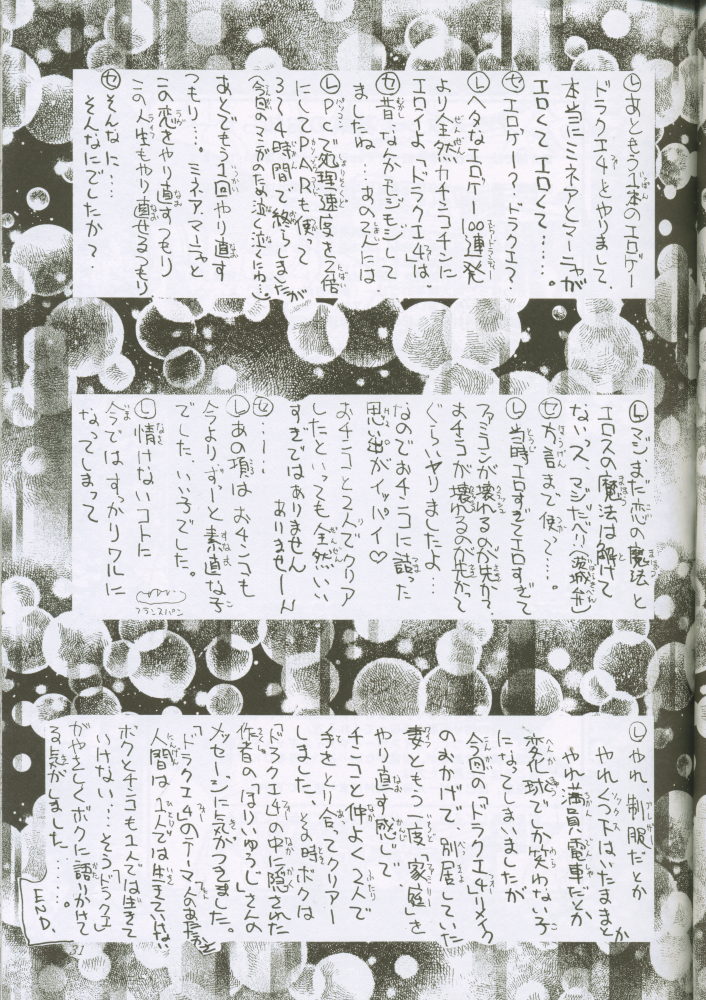 Ⓛあともう1本のエロゲー
ドラクエ4とやりまして、
本当にミネアとマーニャが
エロくてエロくて……。
セ エロゲー?ドラクエ?
Ⓛヘタなエロゲー100連発
より全然カチンコチンに
エロイよ「ドラクエ4」は。
セ 昔、なんかモジモジして
ましたね…あの2人には、
ⓁPCで処理速度を2倍
にしてPARも使って
3て4時間で終らしましたが
(今回のマンガの伝説泣く泣くにゅ…)
あとでもう1回やり直す
つもり…。ミネア、マーニャと
この恋をやり直すつもり
この人生もやり直せるつもり
セ そんなに…
そんなにでしたか?
Ⓛマジ、まだ恋の魔法と
エロスの魔法は解けて
ないっス、マジだベリ(茨城弁)
セ 方言まで使って…。
Ⓛ当時エロすぎてエロすぎて
ファミコンが壊れるのが先か?
おチコが壊れるのが先かって
ぐらいヤリましたよ…
なのでおチンコに誤った
思い出がイッパイ♡
おチンコと2人でクリア
したといっても全然いい
すぎではありません
ありませーん
セ …!…
Ⓛあの頃はおチンコも
今よりずーと素直な子
でした、いい子でした。
Ⓛ情けないコトに
今ではすっかりワルに
なってしまって
フランスパン
Ⓛやれ、制服だとか
やれくつ下はいたままとか
やれ満員電車だとか
変化球でしか笑わない子
になってしまいましたが
今回の「ドラクエ4リメイク」
のおかげで、別居していた
妻ともう一度「家庭」を
やり直す感じで、
チンコと仲よく2人で
手をとり合ってクリアー
しました、その時ボクは
「ドラクエ4」の中に隠された
作者の「ほりいゆうじ」さんの
メッセージに気がつきました。
「ドラクエ4」のテーマ「人のあたたかさ」
人間は1人では生きていけない
ボクとチンコも1人では生きて
いけない…そう「ドラクエ」
がやさしくボクに語りかけて
る気がしました……。
END.
31